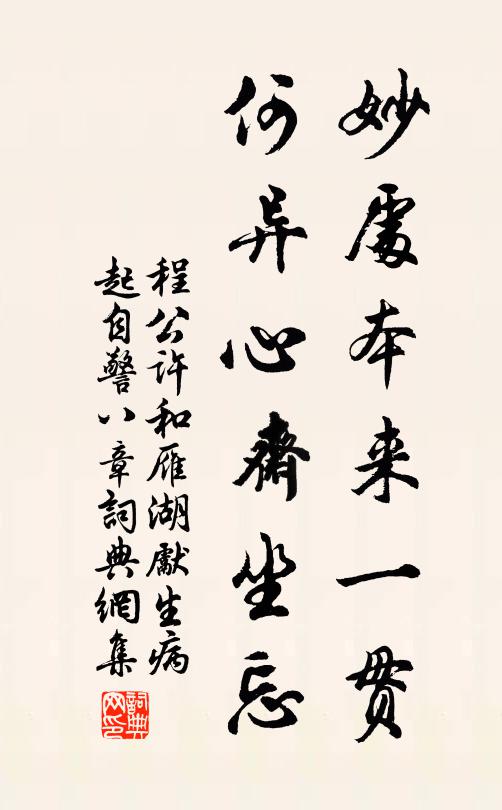 妙處本来一贯
何异心齋坐忘
程公许和雁湖獻生病
起自警八章詞典網集
詞典
网印